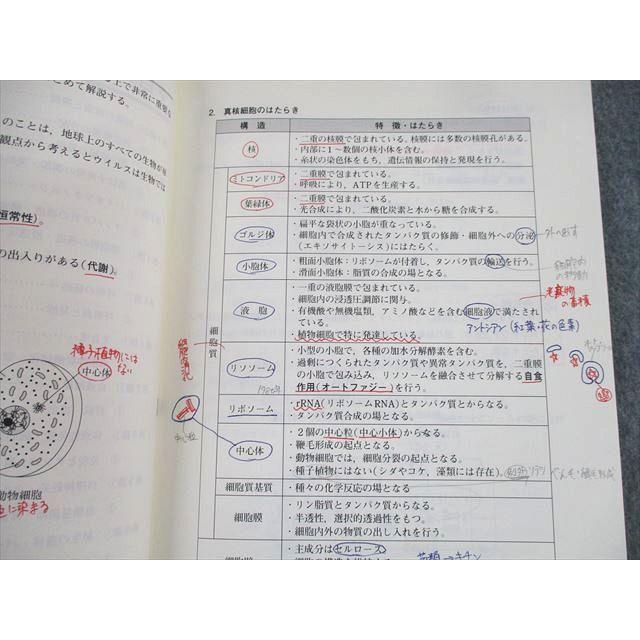 上で非常に重要な
とめて解説する。
のことは，地球上のすべての生物が
観点から考えるとウイルスは生物では
恒常性)。
の出入りがある(代謝)。
種子植物には
ない
中心体
動物細胞
に染まる
2. 真核細胞のはたらき
構造
特徴・はたらき
核
・二重の核膜で包まれている。核膜には多数の核膜孔がある。
・内部に1～数個の核小体を含む。
・糸状の染色体をもち，遺伝情報の保持と発現を行う。
細胞質
ミトコンドリア
・二重膜で包まれている。
・呼吸により，ATPを生産する。
葉緑体
・二重膜で包まれている。
・光合成により，二酸化炭素と水から糖を合成する。
ゴルジ体
・扁平な袋状の小胞が重なっている。
・細胞内で合成されたタンパク質の修飾・細胞外への分泌
(エキソサイトーシス)にはたらく。
小胞体
・粗面小胞体：リボソームが付着し，タンパク質の輸送を行う。
・滑面小胞体：脂質の合成の場となる。
液胞
・一重の液胞膜で包まれている。
・細胞内の浸透圧調節に関与。
・有機酸や無機塩類，アミノ酸などを含む細胞液で満たされ
ている。
・植物細胞で特に発達している。
老廃物
の蓄積
アントシアン(紅葉・花の色素)
リソソーム
・小型の小胞で，各種の加水分解酵素を含む。
・過剰につくられたタンパク質や異常タンパク質を，二重膜
の小胞で包み込み，リソソームを融合させて分解する自食
作用(オートファジー)を行う。
リボソーム
・rRNA(リボソームRNA)とタンパク質とからなる。
・タンパク質合成の場となる。
中心体
・2個の中心粒(中心小体)からなる。
・鞭毛形成の起点となる。
・動物細胞では，細胞分裂の起点となる。
・種子植物にはない(シダやコケ，藻類には存在)。
中心粒
細胞質基質
・種々の化学反応の場となる
細胞膜
・リン脂質とタンパク質からなる。
・半透性，選択的透過性をもつ。
・細胞内外の物質の出し入れを行う。
・主成分はセルロース